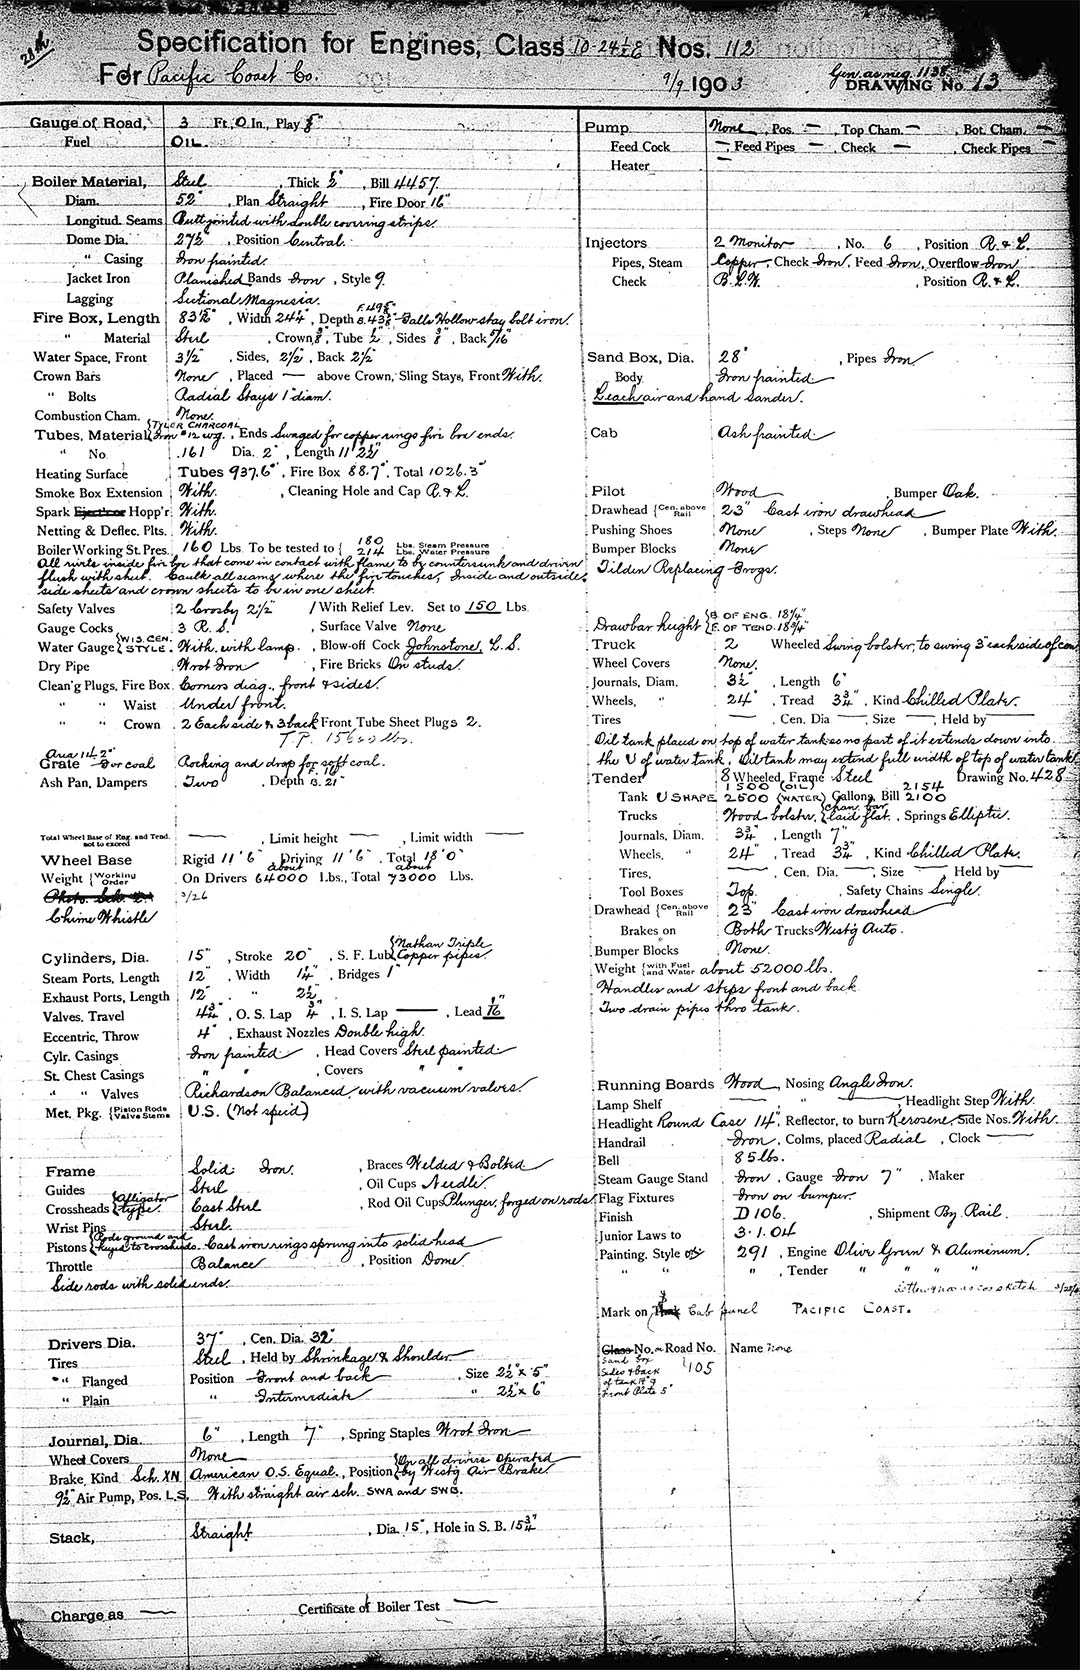 21th
Specification for Engines, Class 10-24 1/2 E Nos. 112
For Pacific Coast Co. 9/9 1903 Gen. as neg. 1138 DRAWING No. 13
Gauge of Road, 3 Ft, 0 In., Play 5/8"
Fuel OIL
Boiler Material, Steel, Thick 1/2", Bill 4457.
Diam. 52", Plan Straight, Fire Door 16"
Longitud. Seams Butt jointed with double covering strips.
Dome Dia. 27 1/2", Position Central.
" Casing Iron painted.
Jacket Iron Planished Bands Iron, Style 9.
Lagging Sectional Magnesia.
Fire Box, Length 83 1/16", Width 24 1/4", Depth F. 49 5/8" B. 43 5/8" Falls Hollow stay bolt iron.
" Material Steel, Crown 3/8", Tube 1/2", Sides 3/8", Back 5/16"
Water Space, Front 3 1/2", Sides, 2 1/2", Back 2 1/2"
Crown Bars None, Placed — above Crown, Sling Stays, Front With.
" Bolts Radial Stays 1" diam.
Combustion Cham. None.
Tubes, Material { TYLER CHARCOAL Iron #12 wg., Ends Swaged for copper rings fire box ends.
" No. 161 Dia. 2", Length 11' 2 1/2"
Heating Surface Tubes 937.6 , Fire Box 88.7 , Total 1026.3
Smoke Box Extension With. , Cleaning Hole and Cap R. & L.
Spark Ejector Hopp'r With.
Netting & Deflec. Plts. With.
Boiler Working St. Pres. 160 Lbs. To be tested to { 180 Lbs. Steam Pressure 214 Lbs. Water Pressure
All rivets inside fire box that come in contact with flame to be countersunk and driven
flush with sheet. Caulk all seams where the fire touches, Inside and outside,
side sheets and crown sheets to be in one sheet.
Safety Valves 2 Crosby 2 1/2" 1 With Relief Lev. Set to 150 Lbs.
Gauge Cocks 3 R. S. , Surface Valve None
Water Gauge { WIS. CEN. STYLE. With, with lamp. , Blow-off Cock Johnstone, L. S.
Dry Pipe Wrot Iron , Fire Bricks On studs.
Clean'g Plugs, Fire Box Corners diag., front & sides.
" " Waist Under front.
" " Crown 2 Each side & 3 back Front Tube Sheet Plugs 2.
T.P. 15600 lbs.
Area 14.2
Grate For coal Rocking and drop for soft coal.
Ash Pan, Dampers Two , Depth F. 16" B. 21"
Total Wheel Base of Eng. and Tend. not to exceed — , Limit height — , Limit width —
Wheel Base Rigid 11' 6", Driving 11' 6", Total 18' 0"
Weight { Working Order On Drivers about 64000 Lbs., Total about 73000 Lbs.
Photo. Sch. 2. 3/26
Chime Whistle
Cylinders, Dia. 15", Stroke 20", S. F. Lub. { Nathan Triple Copper pipes.
Steam Ports, Length 12", Width 1 1/4", Bridges 1"
Exhaust Ports, Length 12", " 2 1/2"
Valves, Travel 4 3/4", O. S. Lap 3/4", I. S. Lap — , Lead 1/16"
Eccentric, Throw 4", Exhaust Nozzles Double high.
Cylr. Casings Iron painted , Head Covers Steel painted
St. Chest Casings " " , Covers " "
" " Valves Richardson Balanced, with vacuum valves.
Met. Pkg. { Piston Rods Valve Stems U.S. (Not spec'd)
Frame Solid Iron. , Braces Welded & Bolted
Guides Steel , Oil Cups Needle.
Crossheads { Alligator type. Cast Steel , Rod Oil Cups Plunger, forged on rods.
Wrist Pins Steel.
Pistons { Rods ground and keyed to crossheads. Cast iron rings sprung into solid head
Throttle Balance , Position Dome
Side rods with solid ends.
Drivers Dia. 37", Cen. Dia. 32"
Tires Steel, Held by Shrinkage & Shoulder
" Flanged Position Front and back , Size 2 1/2" x 5"
" Plain " Intermediate " 2 1/2" x 6"
Journal, Dia. 6", Length 7", Spring Staples Wrot Iron
Wheel Covers None
Brake, Kind Sch. XN American O.S. Equal. , Position { On all drivers Operated by West'g Air Brake.
9 1/2" Air Pump, Pos. L.S. With straight air sch. SWA and SWB.
Stack, Straight , Dia. 15", Hole in S. B. 15 3/4"
Charge as — Certificate of Boiler Test —
Pump None, Pos. — , Top Cham. — , Bot. Cham. —
Feed Cock — , Feed Pipes — , Check — , Check Pipes —
Heater —
Injectors 2 Monitor , No. 6 , Position R. & L.
Pipes, Steam Copper, Check Iron, Feed Iron, Overflow Iron
Check B. L. W. , Position R. & L.
Sand Box, Dia. 28" , Pipes Iron
Body Iron painted
Leach air and hand sander.
Cab Ash painted
Pilot Wood , Bumper Oak.
Drawhead { Cen. above Rail 23" Cast iron drawhead
Pushing Shoes None , Steps None , Bumper Plate With.
Bumper Blocks None
Tilden Replacing Frogs.
Drawbar height { B OF ENG. 18 3/4" F. OF TEND. 18 3/4"
Truck 2 Wheeled Swing bolster, to swing 3" each side of cen
Wheel Covers None.
Journals, Diam. 3 1/2", Length 6"
Wheels, " 24", Tread 3 3/4", Kind Chilled Plate.
Tires — , Cen. Dia — , Size — , Held by —
Oil tank placed on top of water tank so no part of it extends down into
the U of water tank. Oil tank may extend full width of top of water tank.
Tender 8 Wheeled, Frame Steel Drawing No. 428
Tank U SHAPE 1500 (OIL) 2500 (WATER) Gallons, Bill 2154 2100
Trucks Wood bolster, { Chan. bar laid flat. , Springs Elliptic.
Journals, Diam. 3 3/4", Length 7"
Wheels, " 24", Tread 3 3/4", Kind Chilled Plate.
Tires, — , Cen. Dia. — , Size — Held by —
Tool Boxes Top. , Safety Chains Single.
Drawhead { Cen. above Rail 23" Cast iron drawhead
Brakes on Both Trucks West'g Auto.
Bumper Blocks None.
Weight { with Fuel and Water about 52000 lbs.
Handles and steps front and back
Two drain pipes thro tank.
Running Boards Wood , Nosing Angle Iron.
Lamp Shelf — " — , Headlight Step With.
Headlight Round Case 14", Reflector, to burn Kerosene, Side Nos. With.
Handrail Iron, Colms, placed Radial , Clock —
Bell 85 lbs.
Steam Gauge Stand Iron, Gauge Iron 7", Maker
Flag Fixtures Iron on bumper.
Finish D 106. , Shipment By Rail.
Junior Laws to 3.1.04
Painting, Style 291 , Engine Olive Green & Aluminum.
" " " , Tender " " " "
Letter & nos as co. sketch 3/28/4
Mark on Tank Cab panel PACIFIC COAST.
Class No. Road No. Name None
Sand Box
Sides & back 105
of tank 14" 9
Front Plate 5"